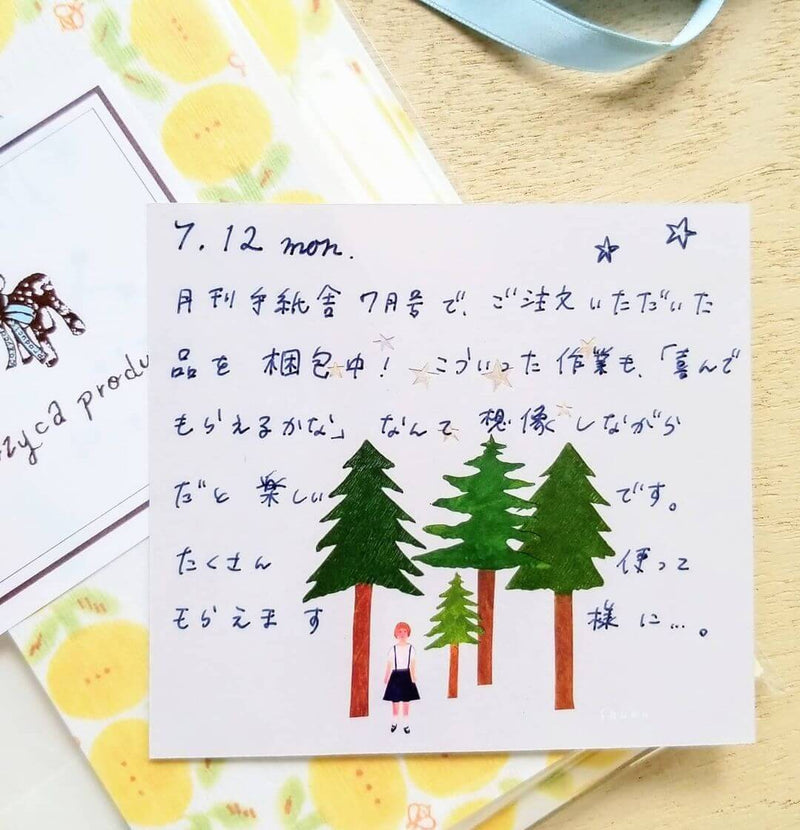 7.12 mon.
月刊手紙舎7月号で、ご注文いただいた
品を 梱包中! こういった作業も、「喜んで
もらえるかな」なんて 想像しながら
だと 楽しいです。
たくさん 使って
もらえます様に…。
zyca produ